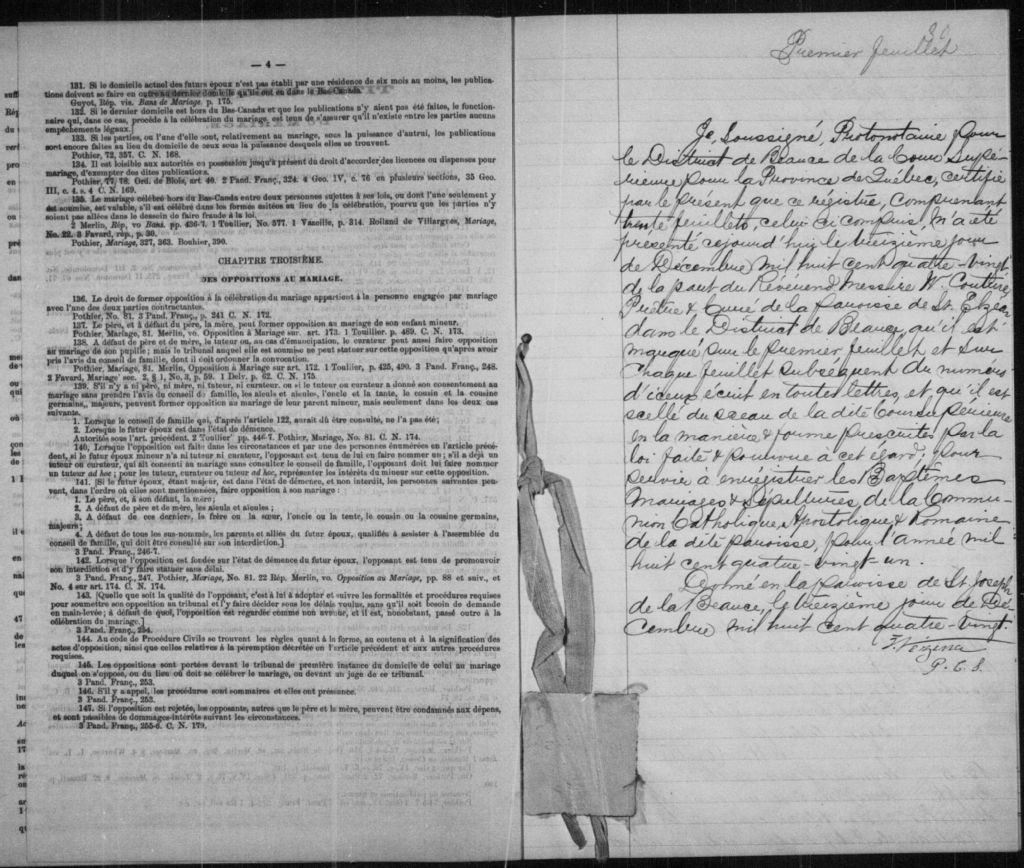 — 4 —
131. Si le domicile actuel des futurs époux n'est pas établi par une résidence de six mois au moins, les publica-
tions doivent se faire en outre au dernier domicile qu'ils ont eu dans le Bas-Canada.
Guyot, Rép. vis. Bans de Mariage. p. 175.
132. Si le dernier domicile est hors du Bas-Canada et que les publications n'y aient pas été faites, le fonction-
naire qui, dans ce cas, procède à la célébration du mariage, est tenu de s'assurer qu'il n'existe entre les parties aucuns
empêchements légaux.]
133. Si les parties, ou l'une d'elles sont, relativement au mariage, sous la puissance d'autrui, les publications
sont encore faites au lieu du domicile de ceux sous la puissance desquels elles se trouvent.
Pothier, 72, 357. C. N. 168.
134. Il est loisible aux autorités en possession jusqu'à présent du droit d'accorder des licences ou dispenses pour
mariage, d'exempter des dites publications.
Pothier, 77, 78. Ord. de Blois, art. 40. 2 Pand. Franç., 324. 4 Geo. IV, c. 76 en plusieurs sections, 35 Geo.
III, c. 4. s. 4 C. N. 169.
135. Le mariage célébré hors du Bas-Canada entre deux personnes sujettes à ses lois, ou dont l'une seulement y
est soumise, est valable, s'il est célébré dans les formes usitées au lieu de la célébration, pourvu que les parties n'y
soient pas allées dans le dessein de faire fraude à la loi.
2 Merlin, Rép, vo Bans. pp. 436-7. 1 Toullier, No. 577. 1 Vazeille, p. 314. Rolland de Villargues, Mariage,
No. 22. 3 Favard, rép., p. 30.
Pothier, Mariage, 327, 363. Bouhier, 390.
CHAPITRE TROISIÈME.
DES OPPOSITIONS AU MARIAGE.
136. Le droit de former opposition à la célébration du mariage appartient à la personne engagée par mariage
avec l'une des deux parties contractantes.
Pothier, No. 81. 3 Pand. Franç., p. 241 C. N. 172.
137. Le père, et à défaut du père, la mère, peut former opposition au mariage de son enfant mineur.
Pothier, Mariage, 81. Merlin, vo. Opposition à Mariage sur. art. 173. 1 Touillier p. 489. C. N. 173.
138. A défaut de père et de mère, le tuteur ou, au cas d'émancipation, le curateur peut aussi faire opposition
au mariage de son pupille; mais le tribunal auquel elle est soumise ne peut statuer sur cette opposition qu'après avoir
pris l'avis du conseil de famille, dont il doit ordonner la convocation.
Pothier, Mariage, 81. Merlin, Opposition à Mariage sur art. 172. 1 Toullier, p. 425, 490. 3 Pand. Franç., 248.
2 Favard, Mariage' sec. 2, § 1, No. 3, p. 59. 1 Delv. p. 62. C. N. 175.
139. S'il n'y a ni père, ni mère, ni tuteur, ni curateur. ou si le tuteur ou curateur a donné son consentement au
mariage sans prendre l'avis du conseil de famille, les aieuls et aieules, l'oncle et la tante, le cousin et la cousine
germains, majeurs, peuvent former opposition au mariage de leur parent mineur, mais seulement dans les deux cas
suivants.
1. Lorsque le conseil de famille qui, d'après l'article 122, aurait dû être consulté, ne l'a pas été;
2. Lorsque le futur époux est dans l'état de démence.
Autorités sous l'art. précédent. 2 Toullier pp. 446-7. Pothier, Mariage, No. 81. C. N. 174.
140. Lorsque l'opposition est faite dans les circonstances et par une des personnes énumérées en l'article précé-
dent, si le futur époux mineur n'a ni tuteur ni curateur, l'opposant est tenu de lui en faire nommer un; s'il a déjà un
tuteur ou curateur, qui ait consenti au mariage sans consulter le conseil de famille, l'opposant doit lui faire nommer
un tuteur ad hoc; pour les tuteur, curateur ou tuteur ad hoc, représenter les intérêts du mineur sur cette opposition.
141. [Si le futur époux, étant majeur, est dans l'état de démence, et non interdit, les personnes suivantes peu-
vent, dans l'ordre où elles sont mentionnées, faire opposition à son mariage:
1. Le père, et, à son défaut, la mère;
2. A défaut de père et de mère, les aieuls et aieules;
3. A défaut de ces derniers, le frère ou la sœur, l'oncle ou la tente, le cousin ou la cousine germains,
majeurs;
4. A défaut de tous les sus-nommés, les parents et alliés du futur époux, qualifiés à assister à l'assemblée du
conseil de famille, qui doit être consulté sur son interdiction.]
3 Pand. Franç., 246-7.
142. Lorsque l'opposition est fondée sur l'état de démence du futur époux, l'opposant est tenu de promouvoir
son interdiction et d'y faire statuer sans délai.
3 Pand. Franç., 247. Pothier, Mariage, No. 81. 22 Rép. Merlin, vo. Opposition au Mariage, pp. 88 et suiv., et
No. 4 sur art. 174. C. N. 174.
143. [Quelle que soit la qualité de l'opposant, c'est à lui à adopter et suivre les formalités et procédures requises
pour soumettre son opposition au tribunal et l'y faire décider sous les délais voulus, sans qu'il soit besoin de demande
en main-levée; à défaut de quoi, l'opposition est regardée comme non avenue, et il est, nonobstant, passé outre à la
célébration du mariage.]
3 Pand. Franç., 254.
144. Au code de Procédure Civils se trouvent les règles quant à la forme, au contenu et à la signification des
actes d'opposition, ainsi que celles relatives à la péremption décrétée en l'article précédent et aux autres procédures
requises.
145. Les oppositions sont portées devant le tribunal de première instance du domicile de celui au mariage
duquel on s'oppose, ou du lieu où doit se célébrer le mariage, ou devant un juge de ce tribunal.
3 Pand. Franç., 253.
146. S'il y a appel, les procédures sont sommaires et elles ont préséance.
3 Pand. Franç., 253.
147. Si l'opposition est rejetée, les opposants, autres que le père et le mère, peuvent être condamnés aux dépens,
et sont passibles de dommages-intérêts suivant les circonstances.
3 Pand. Franç., 255-6. C. N. 179.
Premier feuillet
Je, Soussigné, Protonotaire pour
le District de Beauce de la Cour Supé-
rieure pour la Province de Québec, certifie
par le présent que ce registre, comprenant
trente feuillets, celui ci compris, m'a été
présenté cejourd'hui le treizième jour
de Décembre mil huit cent quatre-vingt
de la part du Révérend Messire W. Couture,
Prêtre & Curé de la paroisse de St. Elzéar
dans le District de Beauce, qu'il est
marqué sur le premier feuillet et sur
chaque feuillet subséquent du numéro
d'iceux écrit en toutes lettres, et qu'il est
scellé du sceau de la dite Cour Supérieure
en la manière & forme prescrites par la
loi faite & pourvue à cet égard, pour
servir à enrégistrer les Baptêmes
Mariages & Sépultures de la Commu-
nion Catholique, Apostolique & Romaine
de la dite paroisse, pour l'année mil
huit cent quatre-vingt-un.
Donné en la paroisse de St. Joseph
de la Beauce, le treizième jour de Dé-
cembre mil huit cent quatre-vingt.
Vézina
P. C. S.